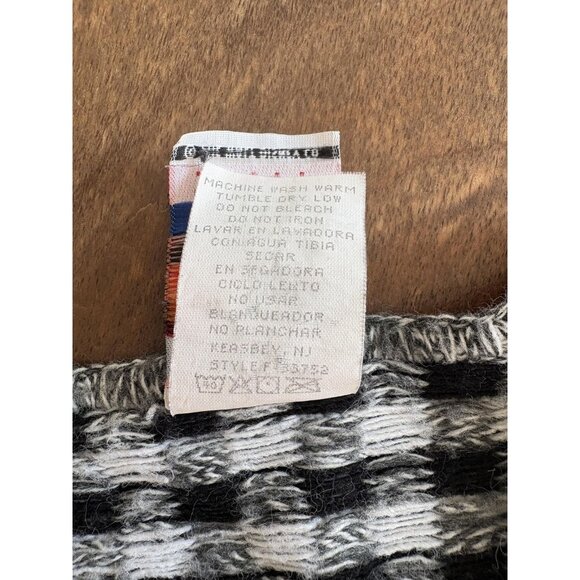 MACHINE WASH WARM
TUMBLE DRY LOW
DO NOT BLEACH
DO NOT IRON
LAVAR EN LAVADORA
CON AGUA TIBIA
SECAR
EN SEGADORA
CICLO LENTO
NO USAR
BLANQUEADOR
NO PLANCHAR
KEASBEY, NJ
STYLE# 33752